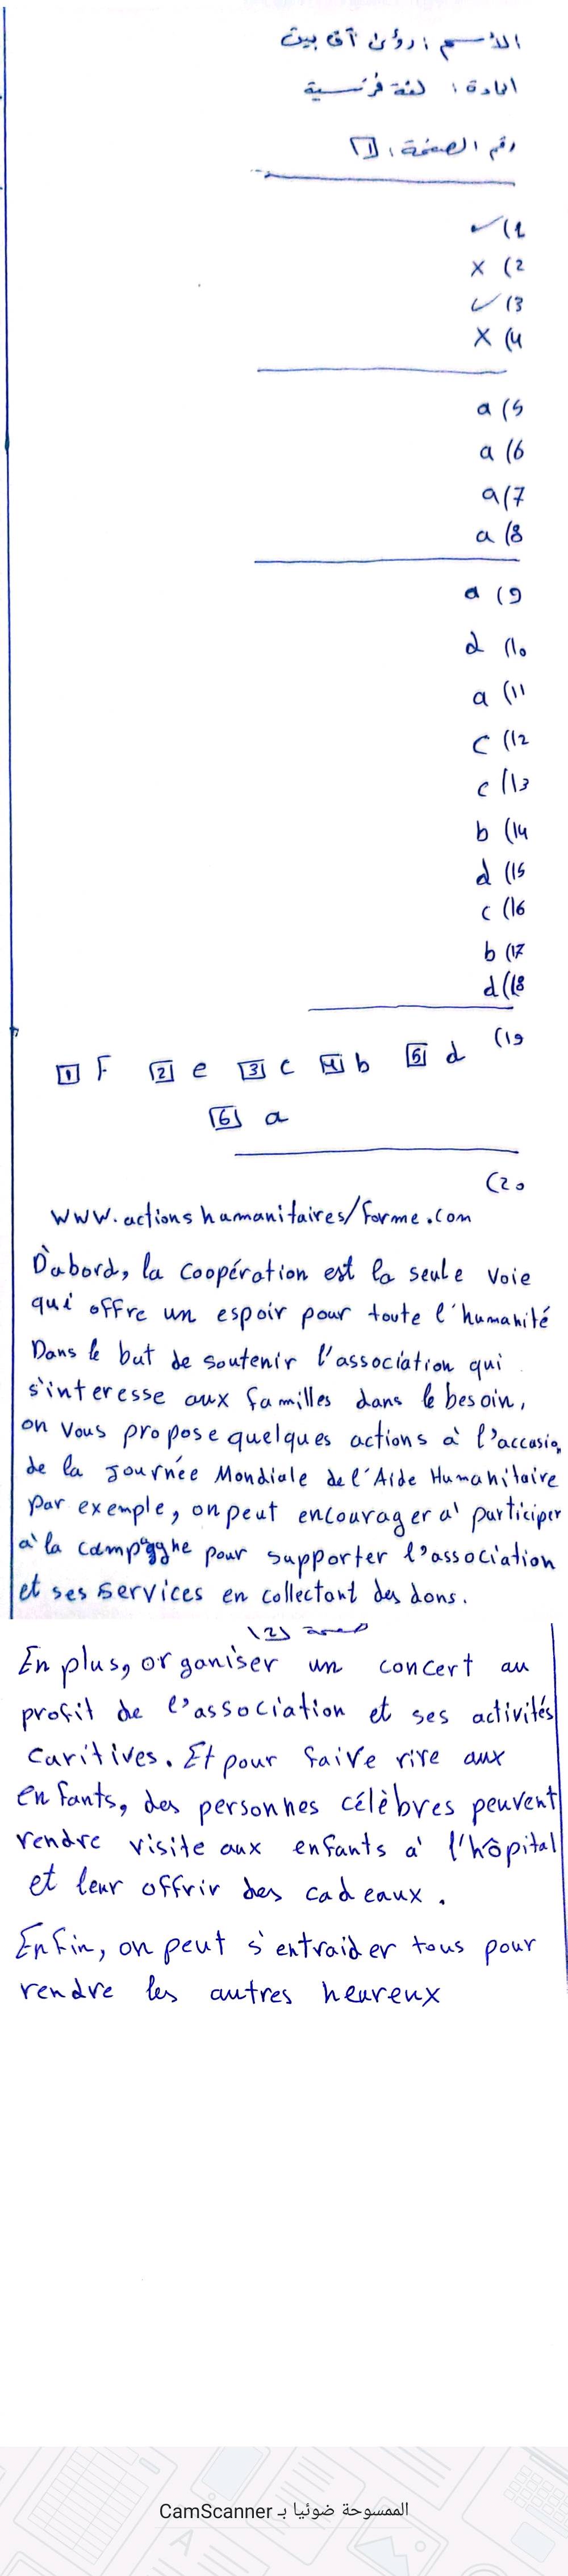 الأسم : رؤى آق بيق
المادة : لغة فرنسية
رقم الصفحة : 1
1) ✓
2) X
3) ✓
4) X
5) a
6) a
7) a
8) a
9) a
10) d
11) a
12) c
13) c
14) b
15) d
16) c
17) b
18) d
19)
1 F 2 e 3 c 4 b 5 d
6 a
20)
www.actionshumanitaires/forme.com
D'abord, la coopération est la seule voie
qui offre un espoir pour toute l'humanité
Dans le but de soutenir l'association qui
s'interesse aux familles dans le besoin,
on vous propose quelques actions à l'accasion
de la Journée Mondiale de l'Aide Humanitaire
Par exemple, on peut encourager à participer
à la campagne pour supporter l'association
et ses services en collectant des dons.
صفحة (2)
En plus, organiser un concert au
profit de l'association et ses activités
caritives. Et pour faire rire aux
enfants, des personnes célèbres peuvent
rendre visite aux enfants à l'hôpital
et leur offrir des cadeaux.
Enfin, on peut s'entraider tous pour
rendre les autres heureux
الممسوحة ضوئيا بـ CamScanner